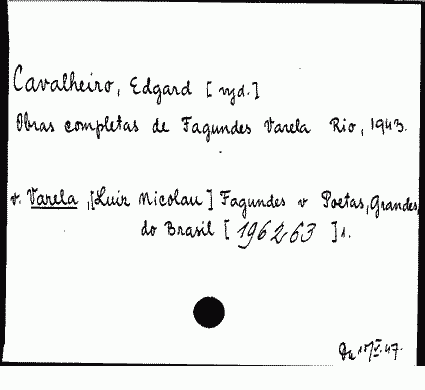 Cavalheiro, Edgard [wyd.]
Obras completas de Fagundes Varela Rio, 1943.
v. Varela, [Luiz Nicolau] Fagundes v Poetas, Grandes,
do Brasil [196263] 1.